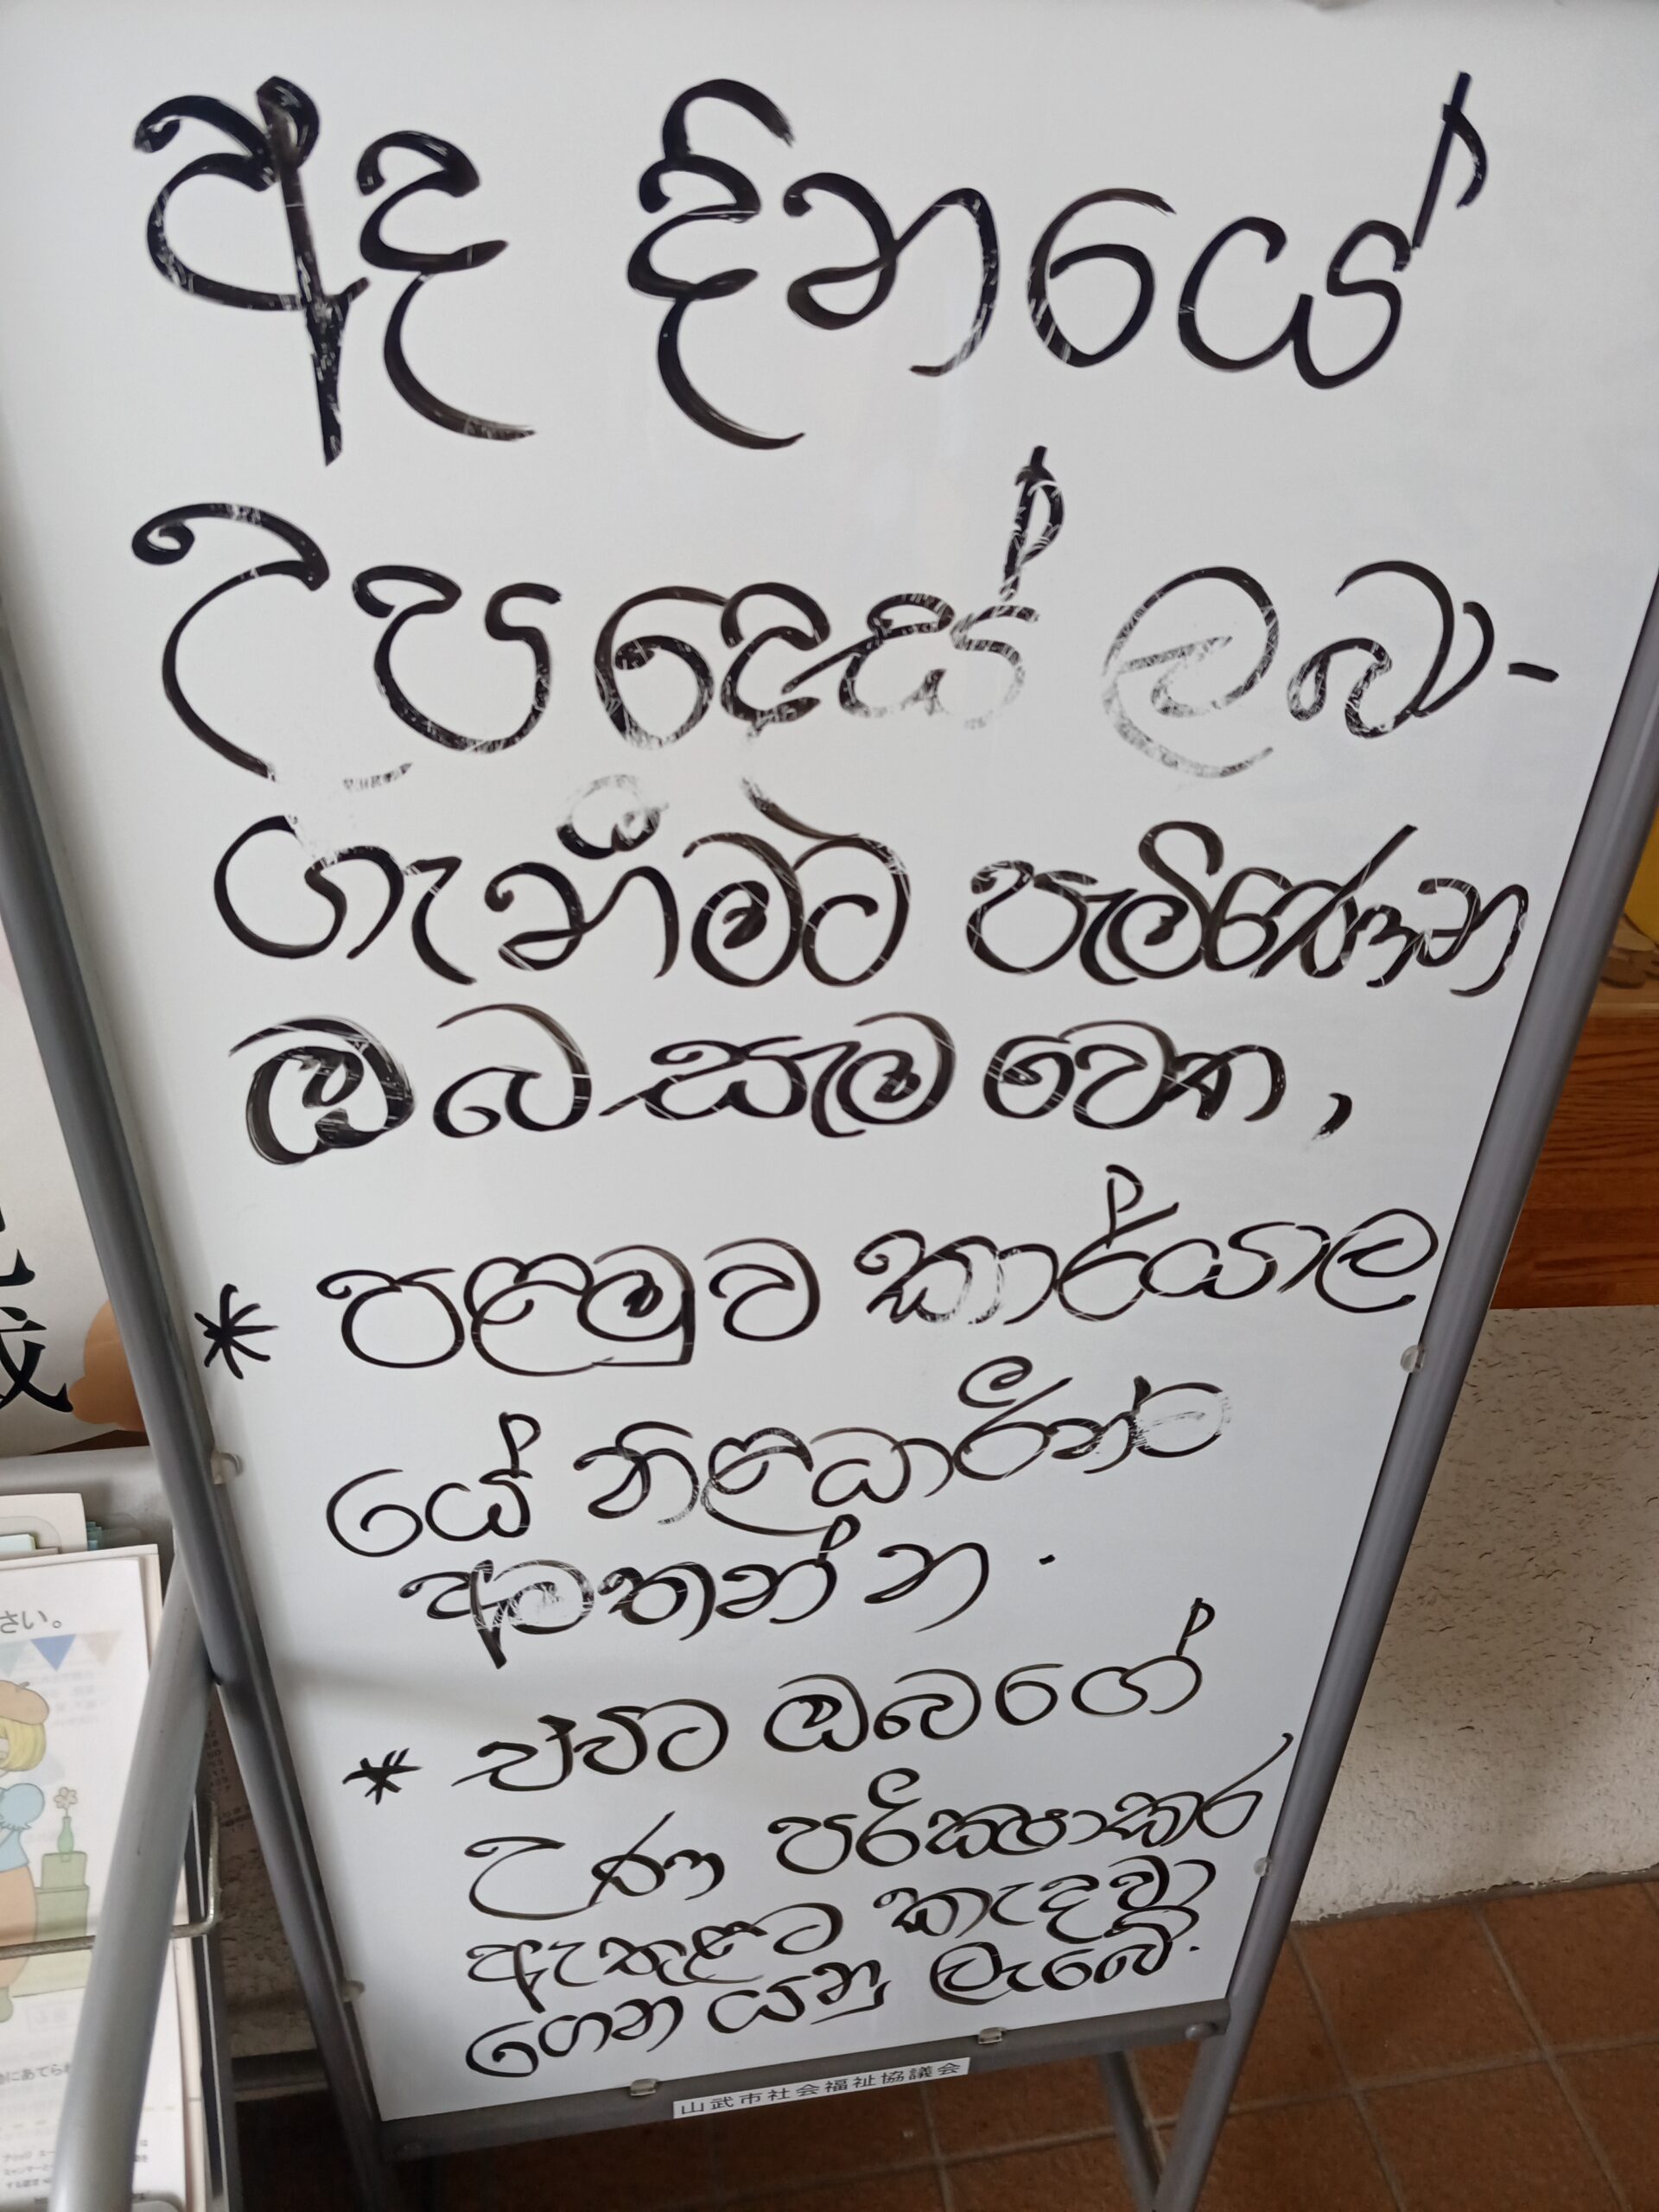 අද දිනයේ
උපදෙස් ලබා-
ගැනීමට පැමිණෙන
ඔබ සැම වෙත,
* පළමුව කාර්යාල
යේ නිළධාරීන්ට
අමතන්න.
* එවිට ඔබගේ
උණ පරීක්ෂාකර
ඇතුළට කැදවා
ගෙන යනු ලැබේ.
山武市社会福祉協議会
さい。